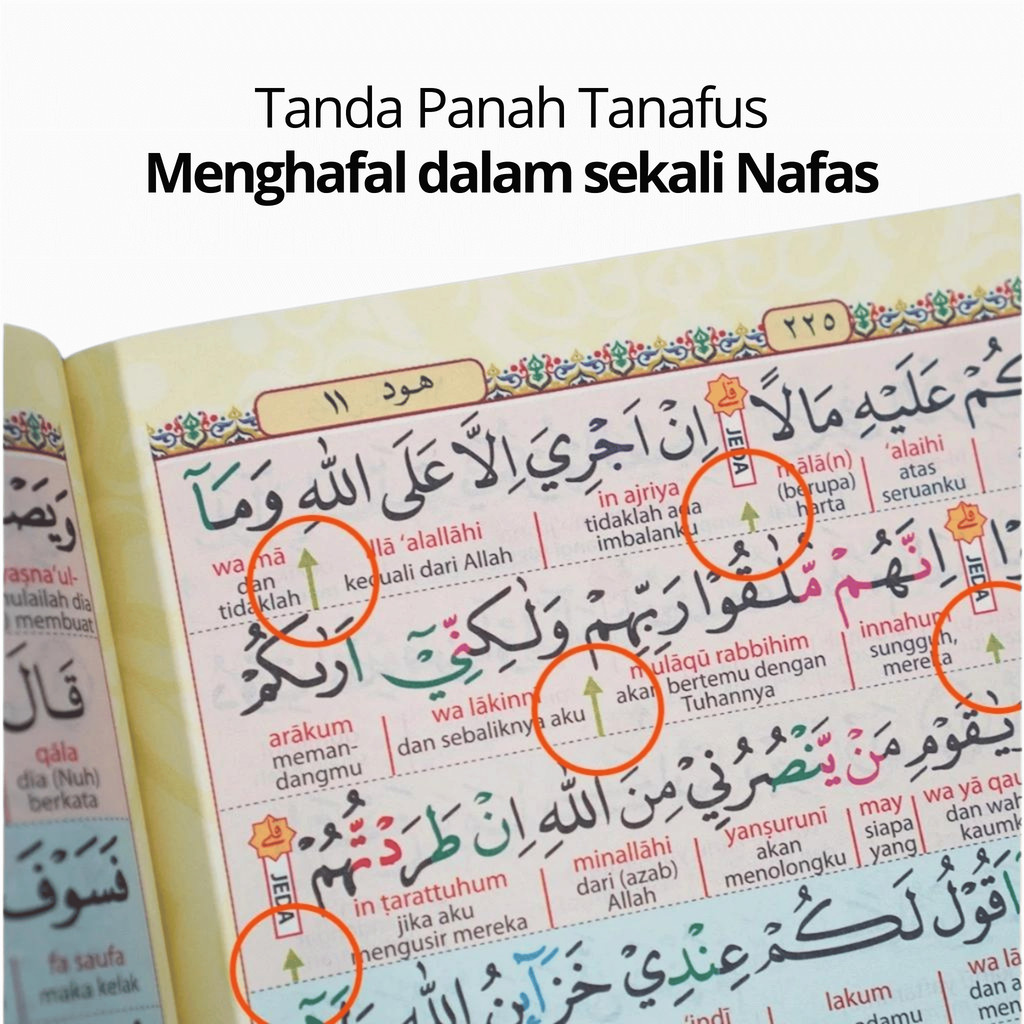 Tanda Panah Tanafus
Menghafal dalam sekali Nafas
٢٢٥
هود ١١
كُمْ عَلَيْهِ مَالًا ۗ اِنْ اَجْرِيَ اِلَّا عَلَى اللّٰهِ وَمَآ
قلے
JEDA
'alaihi
atas
seruanku
mālā(n)
(berupa)
harta
in ajriya
tidaklah ada
imbalanku
illā 'alallāhi
kecuali dari Allah
wa mā
dan
tidaklah
اِنَّهُمْ مُّلٰقُوْا رَبِّهِمْ وَلٰكِنِّيْٓ اَرٰىكُمْ
قلے
JEDA
innahum
sungguh,
mereka
mulāqū rabbihim
akan bertemu dengan
Tuhannya
wa lākinnī
dan sebaliknya aku
arākum
meman-
dangmu
يٰقَوْمِ مَنْ يَّنْصُرُنِيْ مِنَ اللّٰهِ اِنْ طَرَدْتُّهُمْ
قلے
JEDA
wa yā qau
dan wah
kaumk
may
siapa
yang
yanṣuruni
akan
menolongku
minallāhi
dari (azab)
Allah
in ṭarattuhum
jika aku
mengusir mereka
اَقُوْلُ لَكُمْ عِنْدِيْ خَزَاۤىِٕنُ اللّٰهِ
wa lā
dan a
lakum
'indī
وَيَصْ
yaṣna'ul-
mulailah dia
membuat
قَالَ
qāla
dia (Nuh)
berkata
فَسَوْفَ
fa saufa
maka kelak